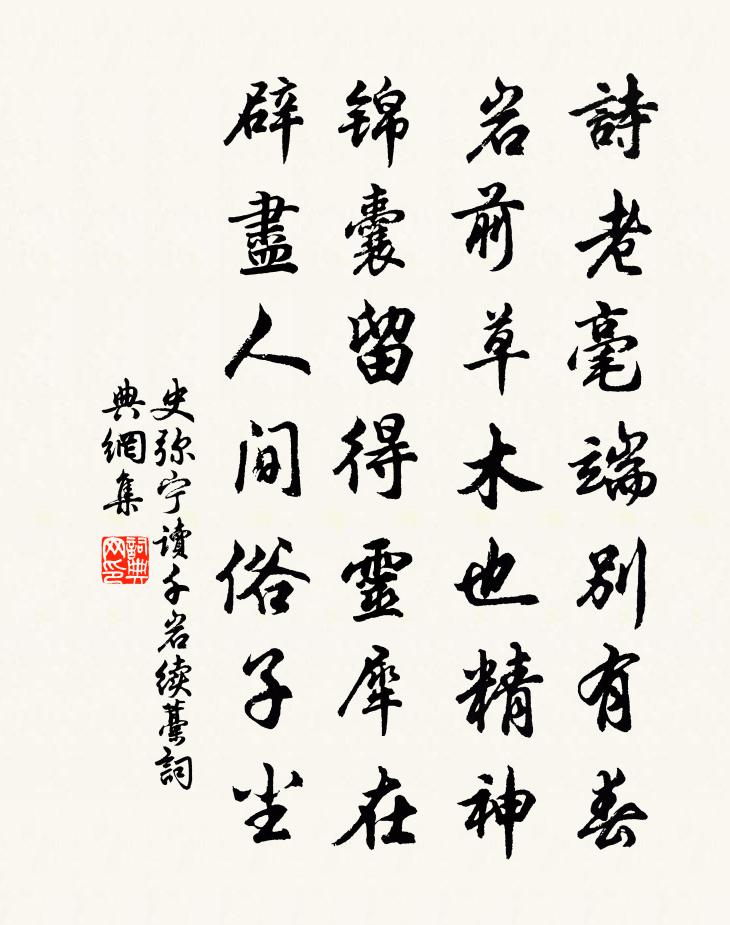 詩老毫端別有春
岩前草木也精神
锦囊留得靈犀在
辟盡人间俗子尘
史弥宁讀千岩续藁詞
典網集
詞典
网印